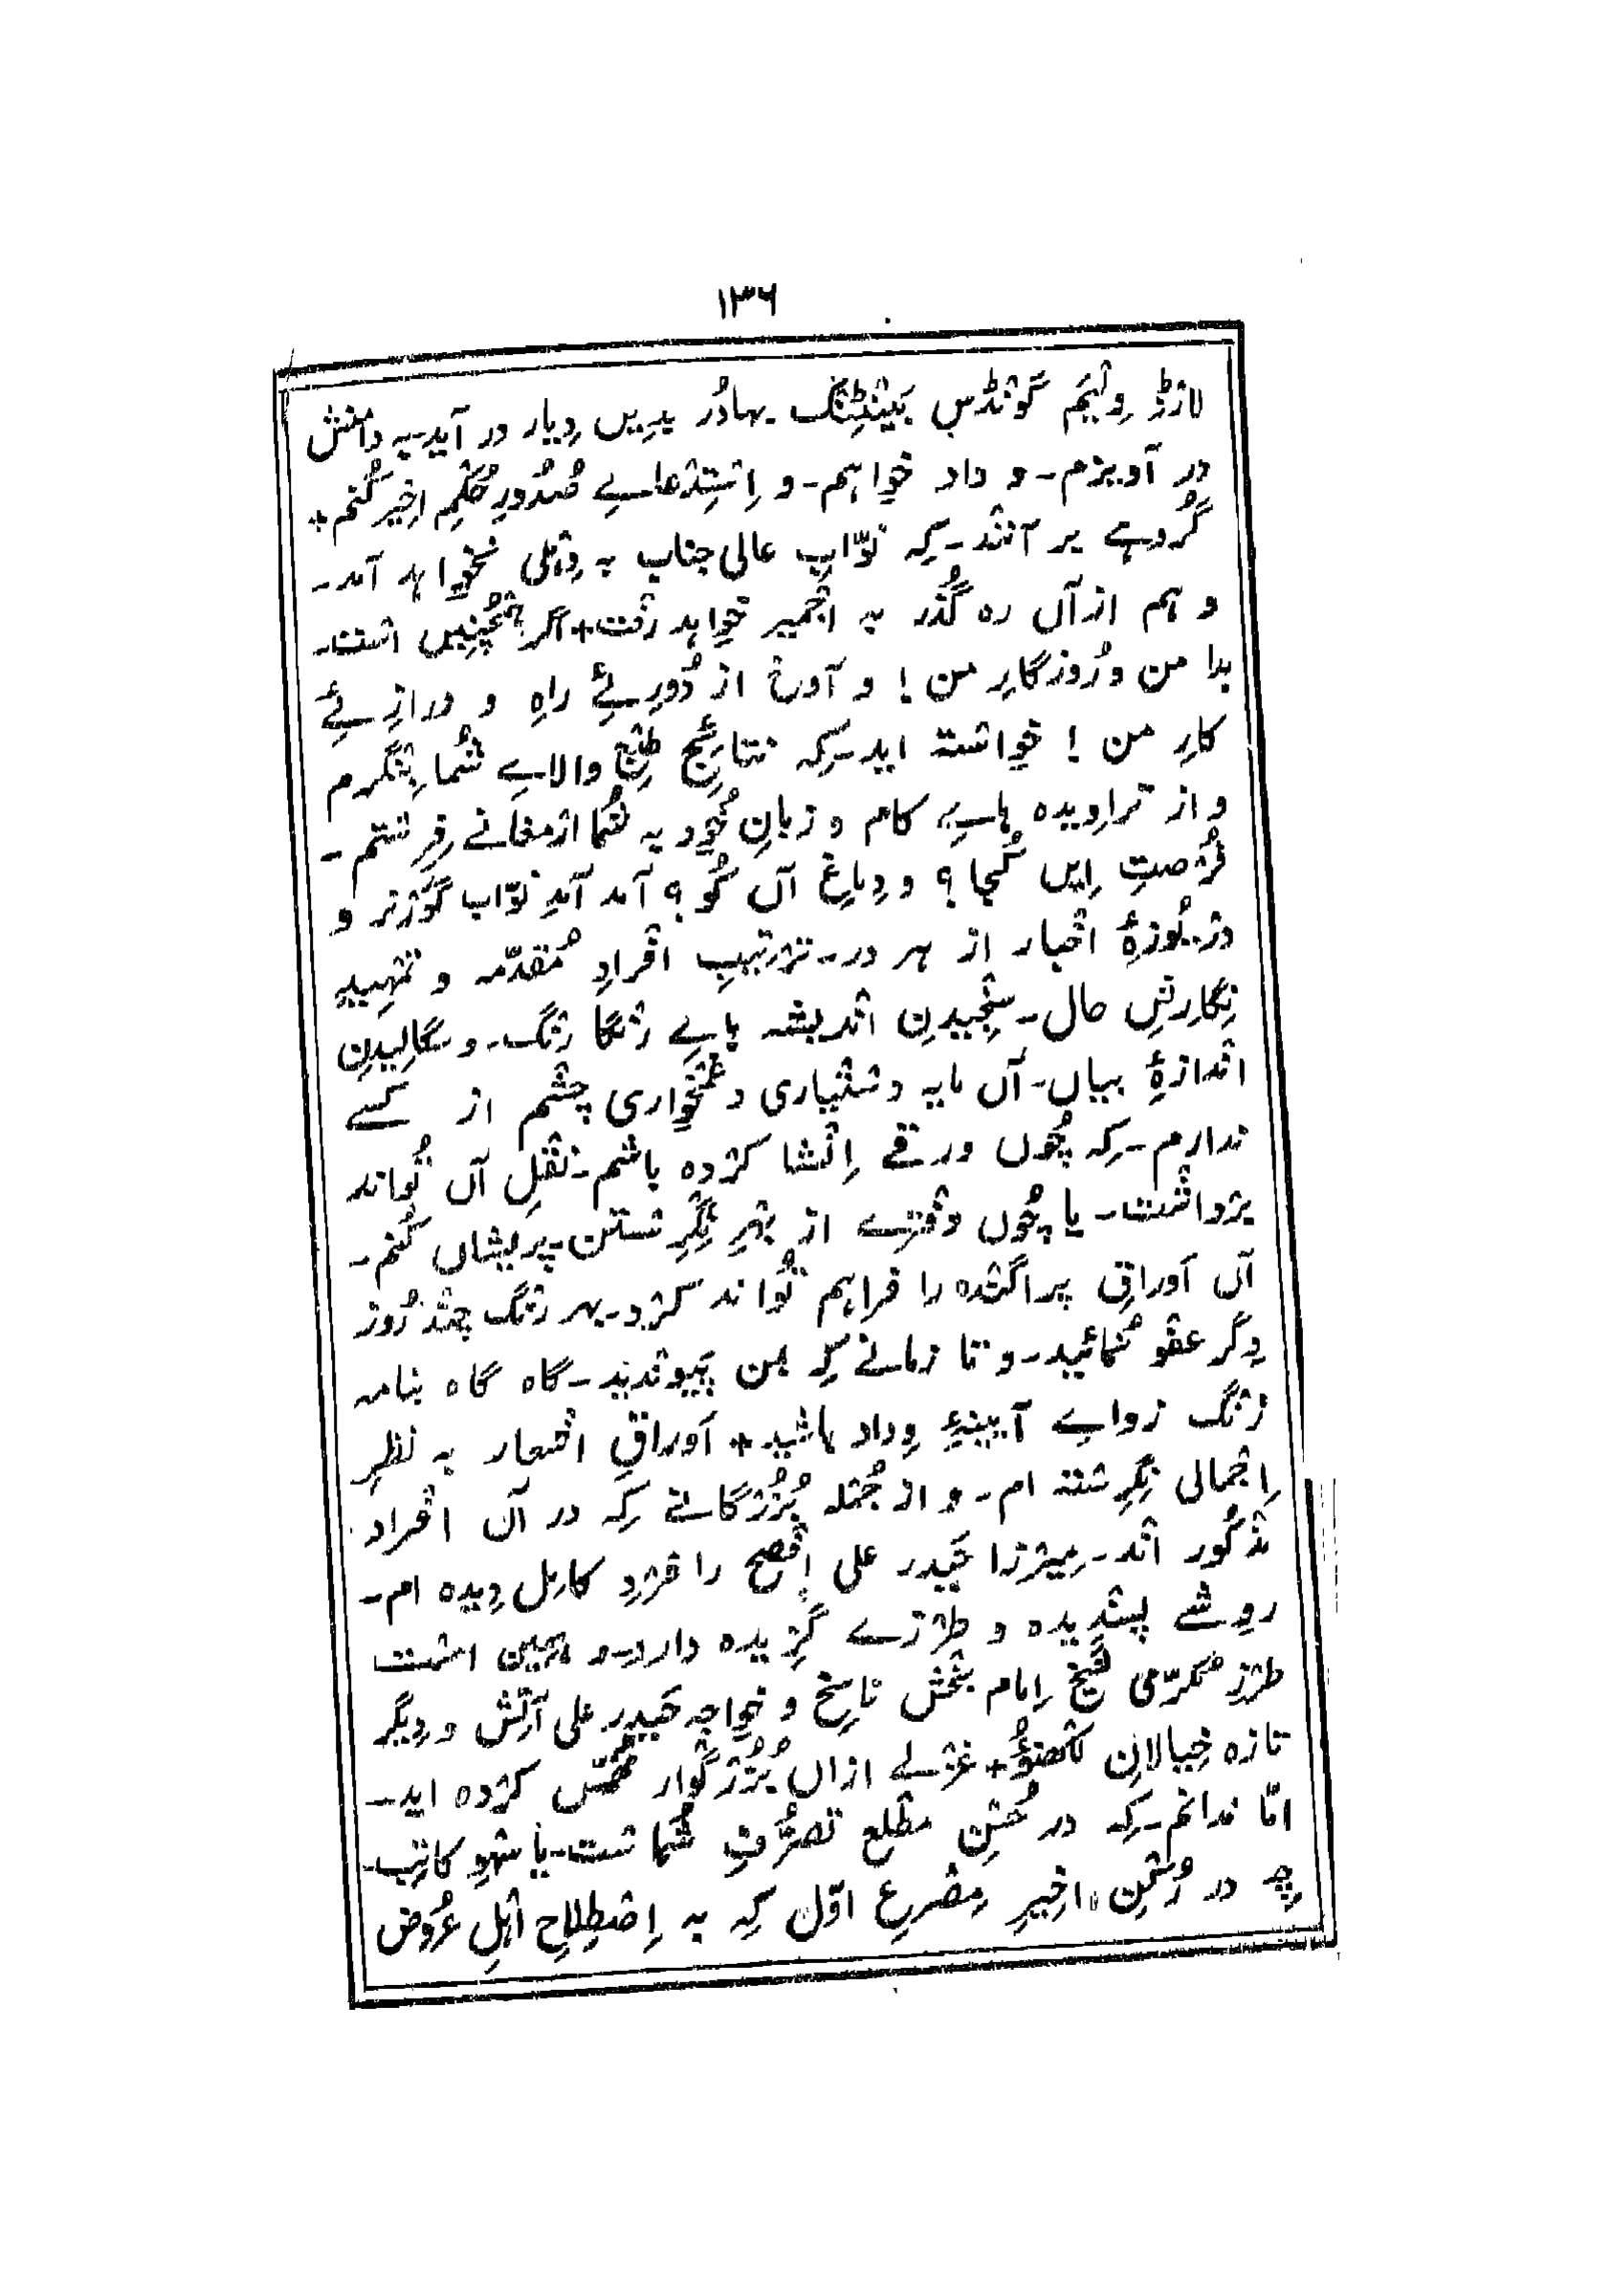 ۱۳۶
لارڈ ولیم گونڈس بینٹنگ بہادُر بدیں دِیار در آید۔ بہ دامنش
در آویزم۔ و داد خواہم۔ و اِستِدعاےِ صُدُورِ حُکمِ اخیر کُنم+
گُروہے بر آنند۔ کہ نوّاب عالی جناب بہ دِہلی نخواہد آمد۔
و ہم ازآں رہ گُذر بہ اجمیر خواہد رفت+ اگر ہمچُنِیں است۔
بدا من و رُوزگارِ من! و آوخ از دُورِیٔ راہِ و درازِیٔ
کارِ من! خواستہ اید۔ کہ نتائجِ طبعِ والاےِ شُما بنگرم
و از تراویدہ ہاےِ کام و زبانِ خُود بہ شُما ارمغانے فرِستم۔
فُرصتِ اِیں کُجا؟ و دِماغِ آں کُو؟ آمد آمدِ نوّاب گورنر و
دریُوزۂ اخبار از ہر در۔ ترتیبِ افرادِ مُقدّمہ و تمہیدِ
نِگارِشِ حال۔ سنجِیدنِ اندیشہ ہاےِ رنگا رنگ۔ و سگالِیدنِ
اندازۂ بیاں۔ آں مایہ دستیاری و غمخواری چشم از کسے
ندارم۔ کہ چُوں ورقے اِنشا کردہ باشم۔ نقلِ آں تُواند
برداشت۔ یا چُوں دفترے از بہرِ نِگرِستن۔ پریشاں کُنم۔
آں اَوراقِ پراگندہ را فراہم تُواند کرد۔ بہر رنگ چند رُوز
دِگر عفو نُمائید۔ و تا زمانے کہ بمن پیوندید۔ گاہ گاہ بنامہ
زنگ زداےِ آیینۂ وِداد باشید+ اَوراقِ اشعار بہ نظرِ
اِجمالی نِگرِستہ ام۔ و از جُملہ بُزُرگانے کہ در آں افراد
مذکُور اند۔ مِیرزا حَیدر علی افصح را فردِ کامِل دِیدہ ام۔
روِشے پسندِیدہ و طرزے گُزِیدہ دارد۔ و ہمِین است
طرزِ مُکرّمی شَیخ اِمام بخش ناسِخ و خواجہ حَیدر علی آتش و دِیگر
تازہ خِیالانِ لکھنؤ+ غزلے ازاں بُزُرگوار مُخمّس کردہ اید۔
امّا ندانم۔ کہ در حُسنِ مطلع تصرُّفِ شُماست۔ یا سہوِ کاتِب۔
چہ در رُکنِ اخِیرِ مِصرعِ اوّل کہ بہ اِصطِلاحِ اہلِ عرُوض